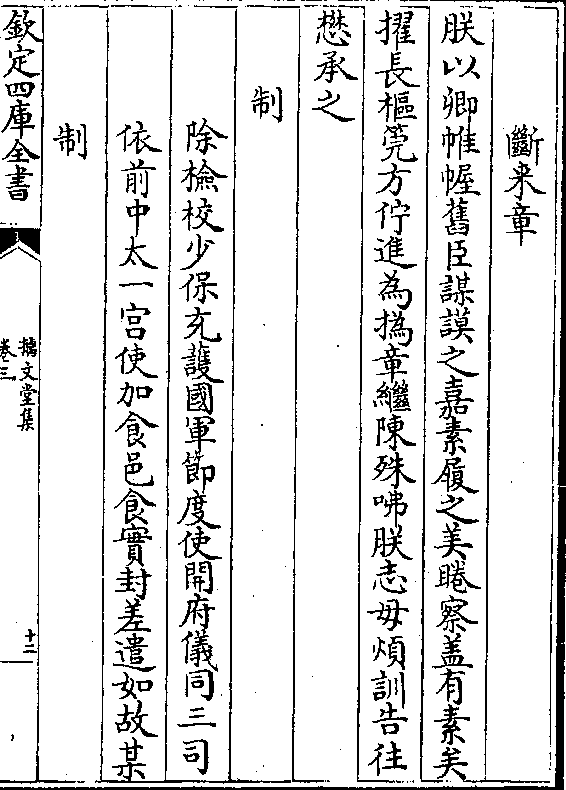 斷来章
朕以卿帷幄舊臣謀謨之嘉素履之美睠察蓋有素矣
擢長樞筦方佇進為撝章繼陳殊咈朕志毋煩訓告往
懋承之
制
除檢校少保充護國軍節度使開府儀同三司
依前中太一宫使加食邑食實封差遣如故某
制
欽定四庫全書
摛文堂集
卷三
十二